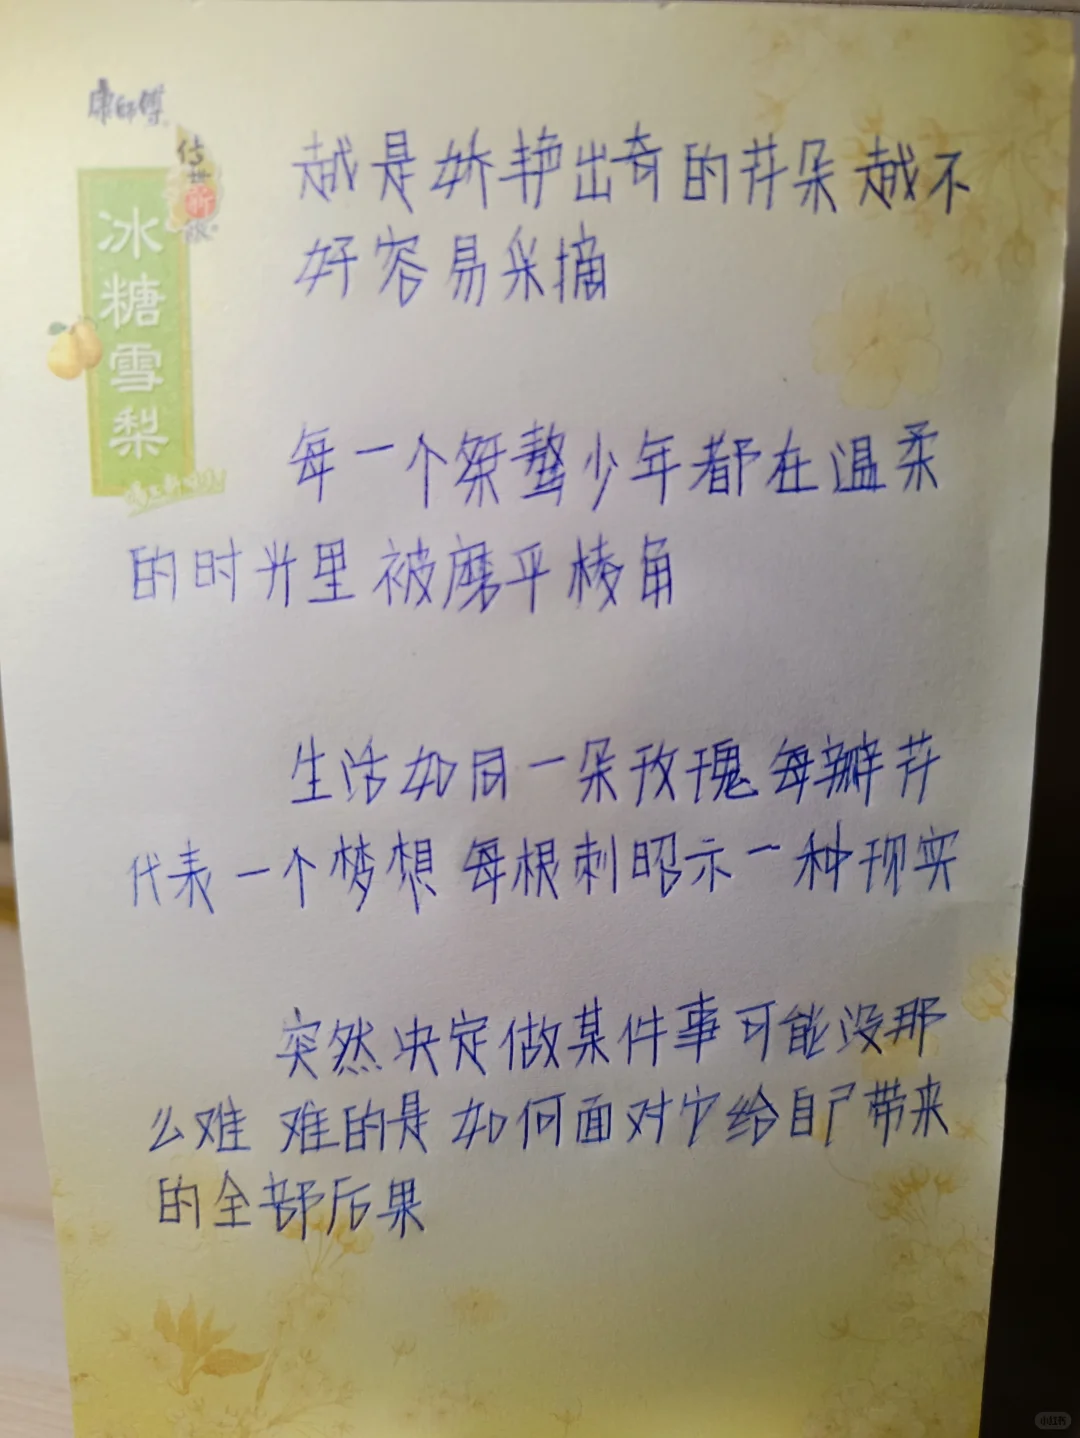 康师傅
传世新饮
冰糖雪梨
越是娇艳出奇的花朵 越不
好容易采摘
每一个桀骜少年都在温柔
的时光里 被磨平棱角
生活如同一朵玫瑰 每瓣花
代表一个梦想 每根刺昭示一种现实
突然决定做某件事可能没那
么难 难的是如何面对它给自己带来
的全部后果
小红书